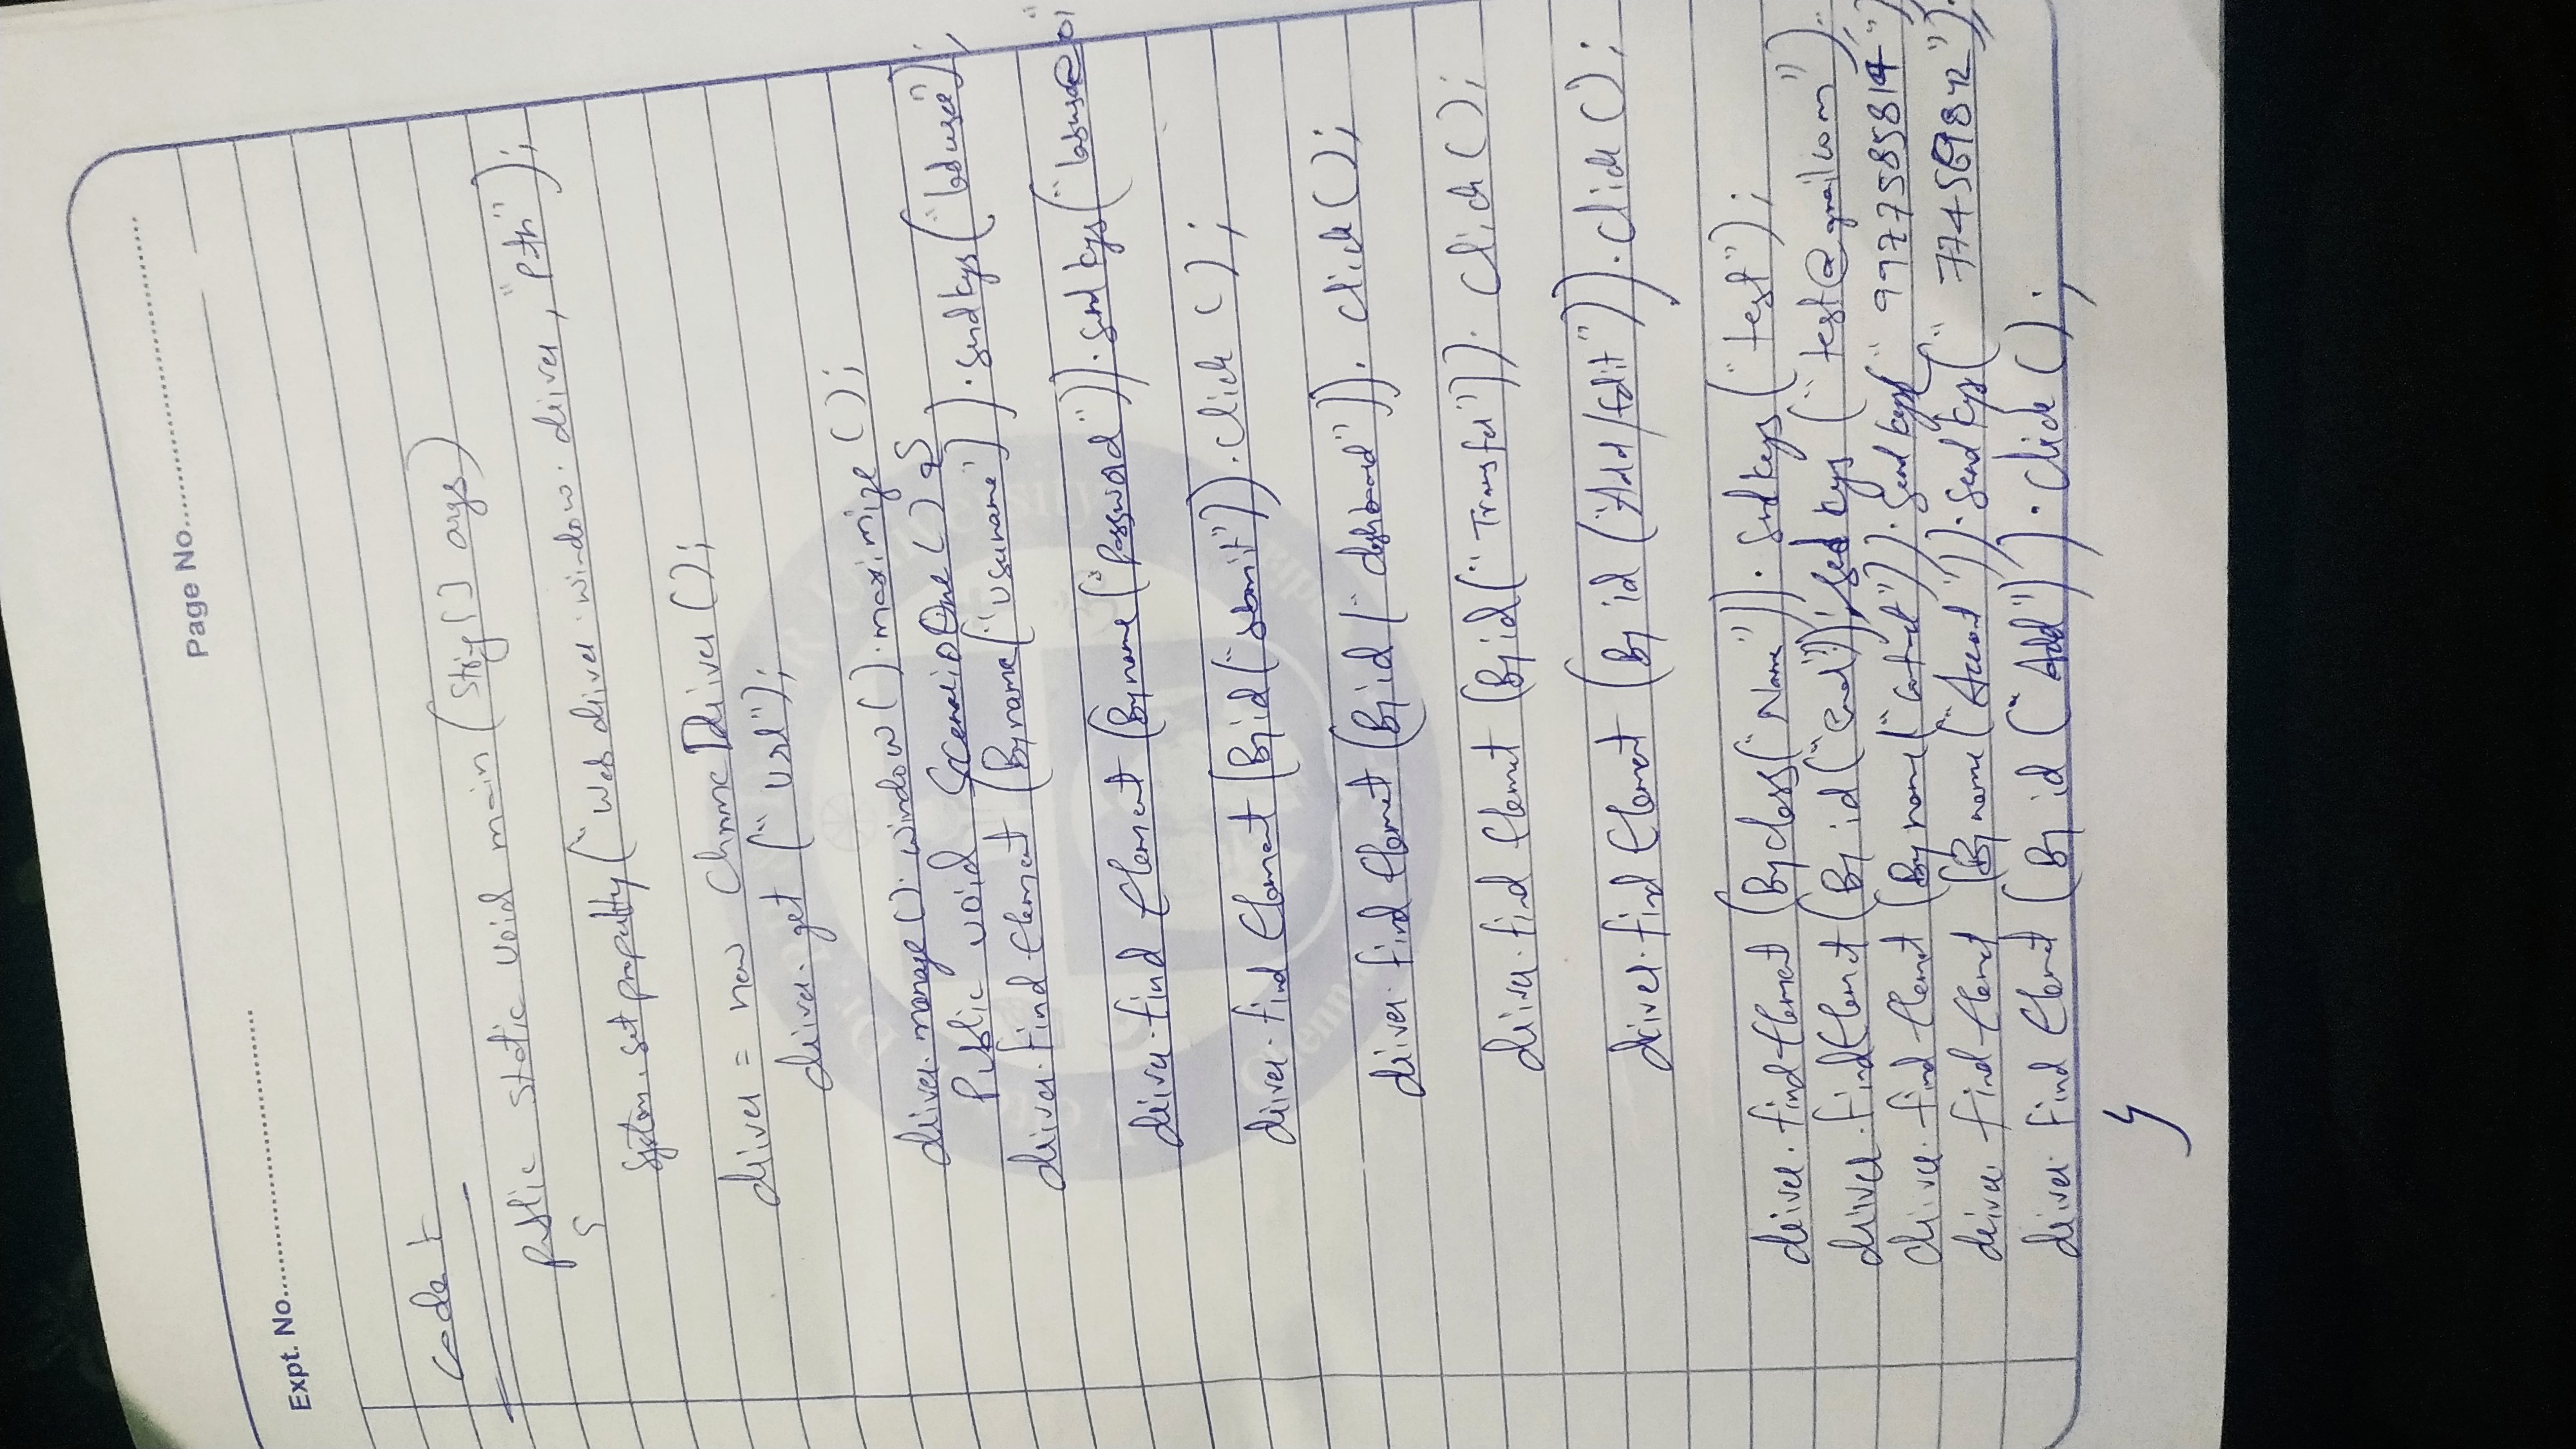 Page No.
Expt. No.
Code :-
public static void main (String [] args)
{
System.set property ("webdriver.window.driver, "Pth");
driver = new Chrome Driver ();
driver.get ("url");
driver.manage().window().maximize ();
Public void ScenarioOne () {
driver.find Element (By name ("username")).send keys ("labuser");
driver.find Element (By name ("Password")).send keys ("labuser@01"
driver.find Element (By id ("submit")).click ();
driver.find Element (By id ("dashboard")).click ();
driver.find Element (By id ("Transfer")).click ();
driver.find Element (By id ("Add/Edit")).click ();
driver.find Element (By class ("Name")).send keys ("test");
driver.find Element (By id ("Email")).send keys ("test@gmail.com");
driver.find Element (By name ("Contact")).send keys ("9977585814");
driver find Element (By name ("Account")).send keys ("774569842");
driver find Element (By id ("Add")).click ();
}